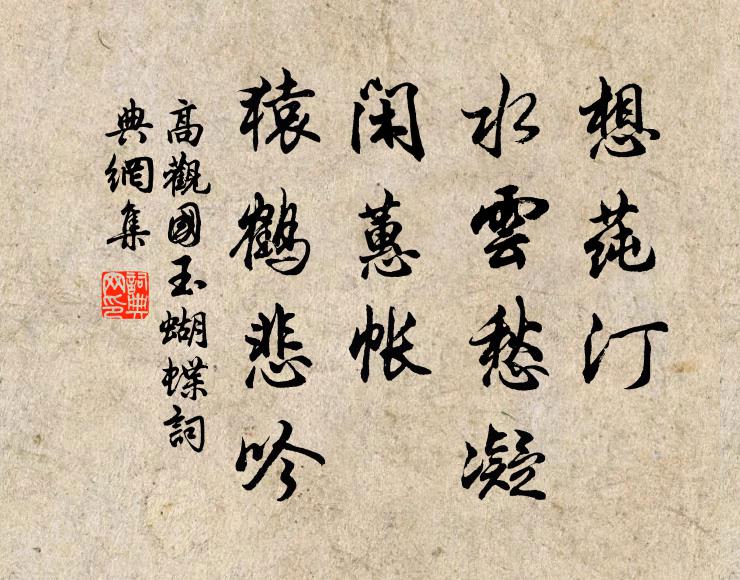 想莼汀
水雲愁凝
闲蕙帐
猿鶴悲吟
高觀國玉蝴蝶詞
典網集
詞典網印